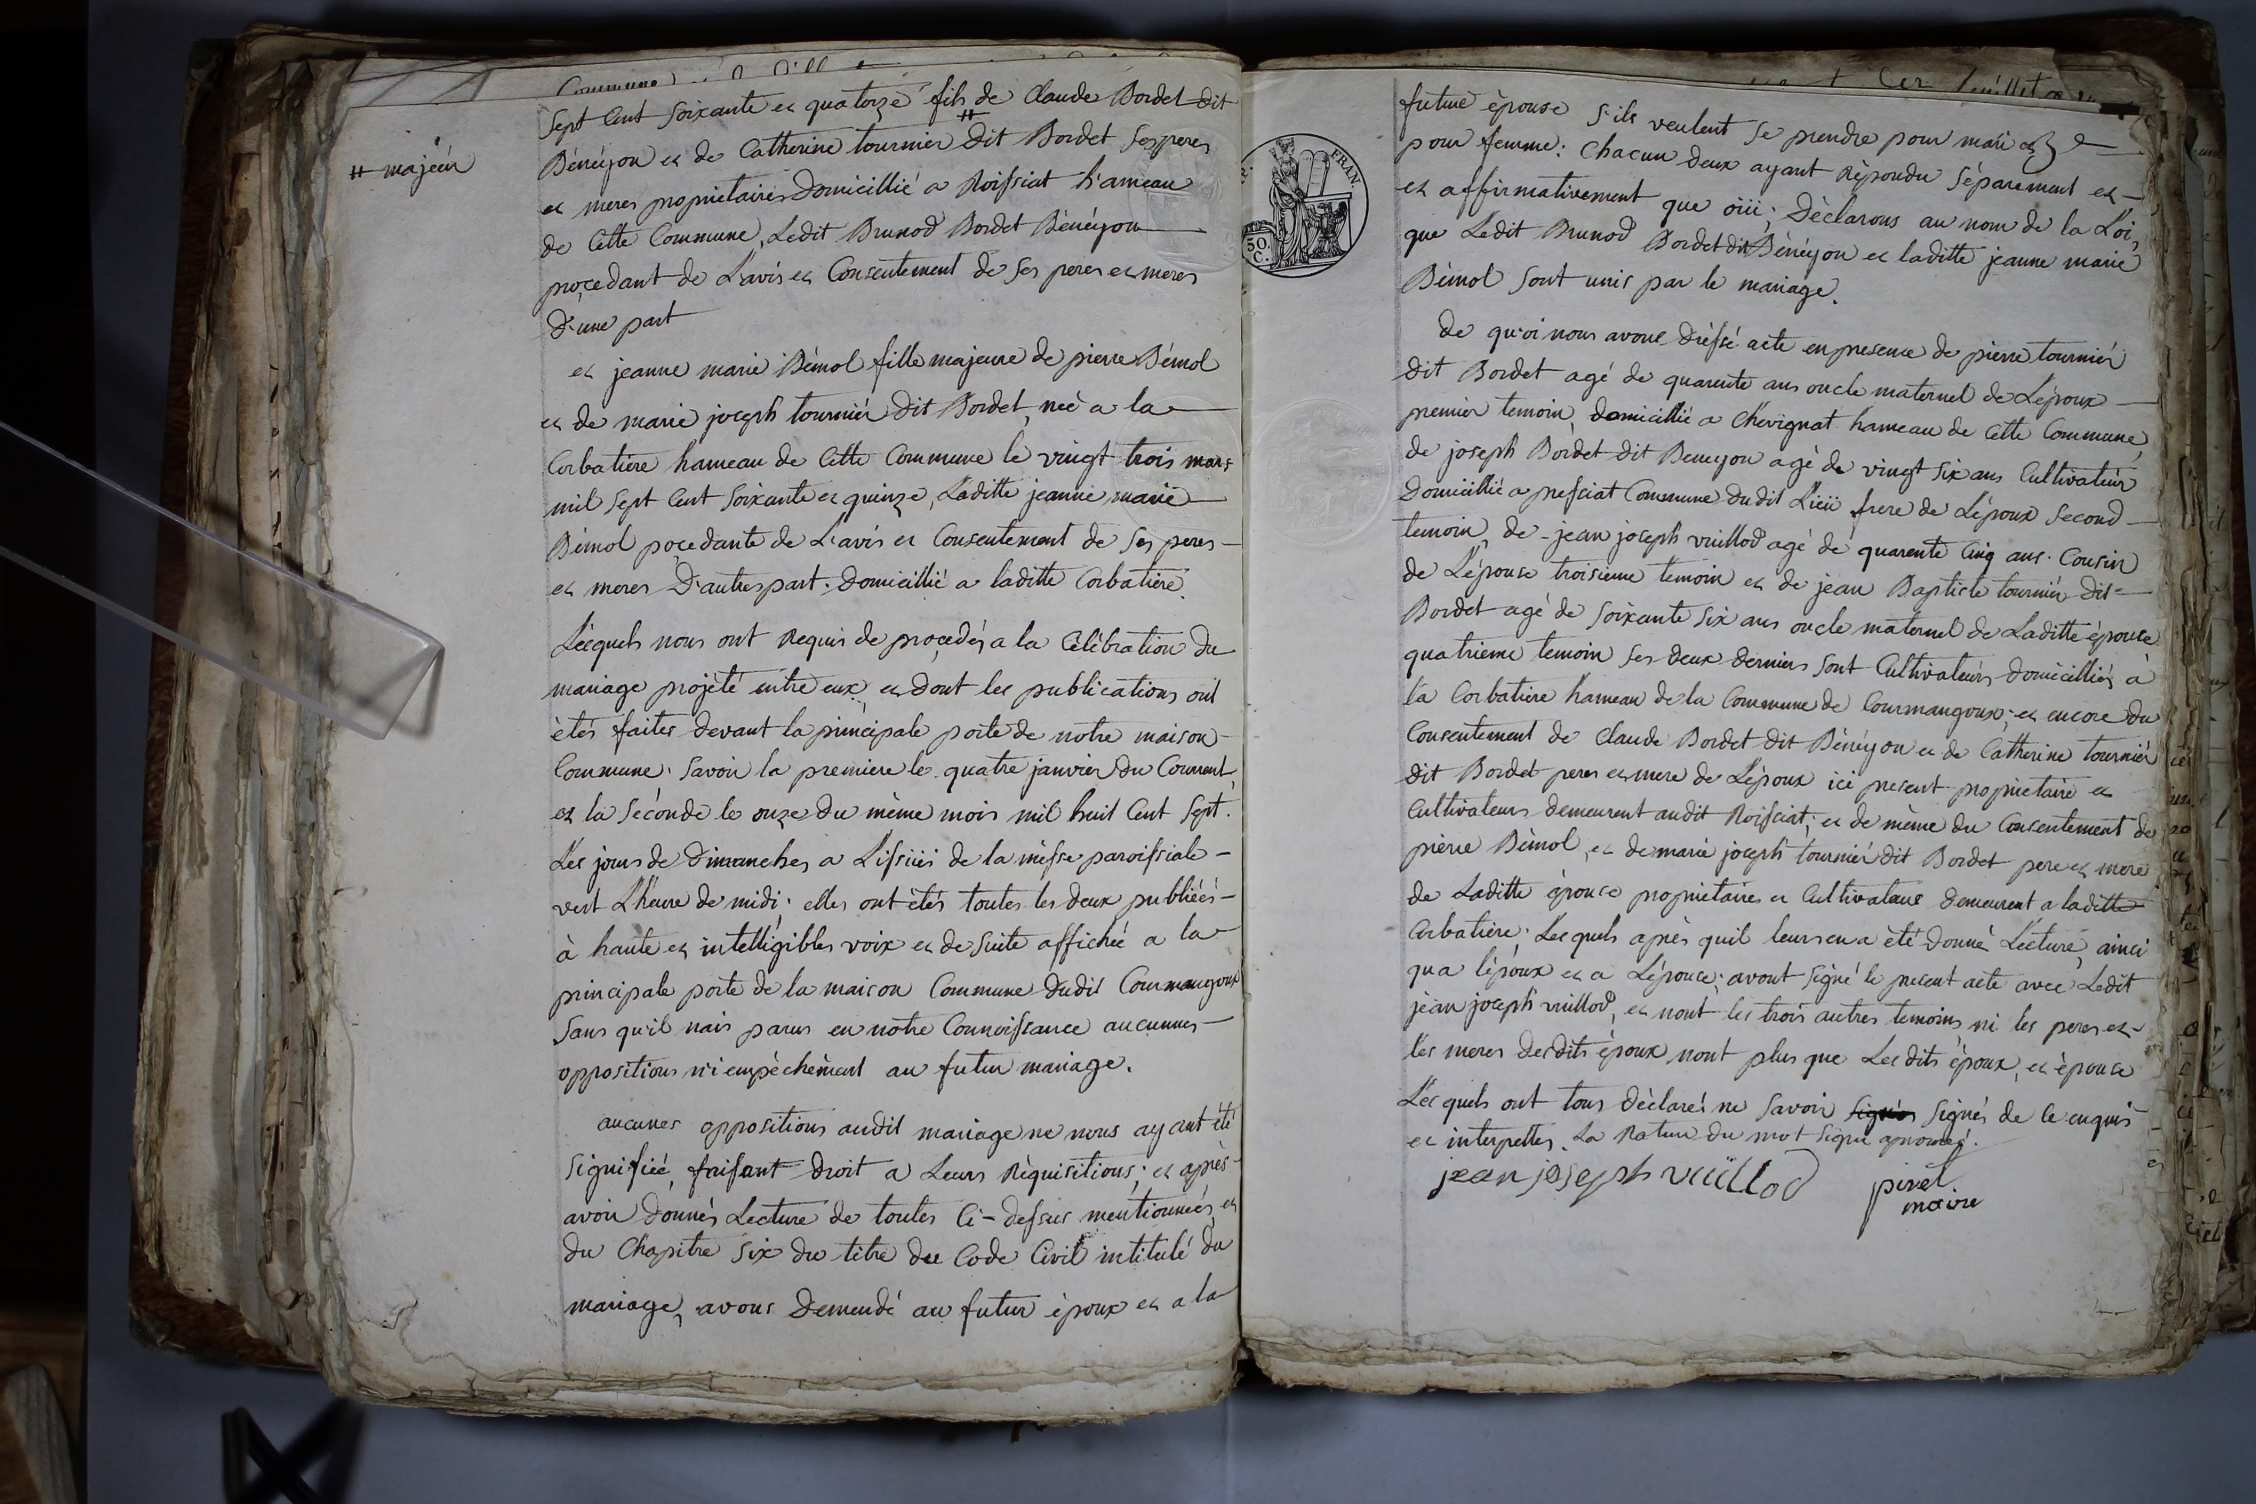 Commune
# majeur
Sept Cent Soixante et quatorze fils de Claude Bordet dit
#
Bénéyon et de Catherine tournier dit Bordet Ses peres
et meres proprietaires Domicillié a Roissiat h'ameau
de Cette Commune, Ledit Brunod Bordet Bénéyon
procedant de L'avis et Consentement de Ses peres et meres
D'une part
et jeanne marie Bémol fille majeure de pierre Bémol
et de marie joseph tournier dit Bordet, neé a la
Corbatiere hameau de Cette Commune le vingt trois mars
mil Sept Cent Soixante et quinze, Laditte jeanne marie
Bémol pocedante de L'avis et Consentement de Ses peres
et meres D'autres part. Domicillié a laditte Corbatiere.
Lesquels nous ont Requis de procedés a la Célébration du
mariage projèté entre eux, et dont les publications ont
ètés faites devant la principale porte de notre maison
Commune. Savoir la premiere le quatre janvier du Courrent,
et la Séconde le onze du mème mois mil huit Cent Sept.
Les jours de Dimanches a L'issuës de la mèsse paroissiale
vert L'heure de midi; elles ont ètés toutes les deux publiéés
à haute et intelligibles voix et de Suite affichée a la
principale porte de la maison Commune dudit Courmangoux
Sans qu'il nais parus en notre Connoissance aucunnes
oppositions n'i empèchèment au futur mariage.
aucunes oppositions audit mariage ne nous ayant été
Signifiéé, faisant Droit a Leurs Réquisitions; et après
avoir Donnés Lecture de toutes Ci-dessus mentionnées, et
du Chapitre Six du titre du Code Civil intitulé du
mariage, avons Demendé au futur époux et a la
FRAN.
50.
C.
future èpouse S'ils veulent Se prendre pour mari et
pour femme: Chacun deux ayant Répondu Séparement et
et affirmativement que oiii; Dèclarons au nom de la Loi,
que Ledit Brunod Bordet dit Bénéyon et laditte jeanne marie
Bèmol Sont unis par le mariage.
De qu'oi nous avons Drèssé acte en presence de pierre tournier
dit Bordet agé de quarente ans oncle maternel de L'époux
premier temoin, domicillié a Chevignat hameau de Cette Commune,
de joseph Bordet dit Beneyon agé de vingt Six ans Cultivateur
Domicillié a pressiat Commune dudit Lieü frere de L'époux Second
temoin, de jean joseph vuillod agé de quarente Cinq ans. Cousin
de L'épouse troisieme temoin et de jean Baptiste tournier dit
Bordet agé de Soixante Six ans oncle maternel de Laditte épouse
quatrieme temoin Ses deux derniers Sont Cultivateurs domicilliés à
la Corbatiere hameau de la Commune de Courmangoux; et encore du
Consentement de Claude Bordet dit Bénéyon et de Catherine tournier
dit Bordet peres et mere de L'époux ici present proprietaire et
Cultivateurs demeurent audit Roissiat; et de mème du Consentement de
pièrre Bèmol, et de marie joseph tournier dit Bordet pere et mere
de Laditte épouse proprietaires et Cultivateurs demeurent a laditte
Corbatiere. Lesquels après quil leurs en a été Donné Lecture, ainsi
qua l'époux et a L'épouse; avont Signé le present acte avec Ledit
jean joseph vuillod, et nont les trois autres temoins ni les peres et
les meres desdits époux, nont plus que Lesdits époux, et épouse
Lesquels ont tous dèclarés ne Savoir signés Signés de Ce enquis
et interpettes. La Rature du mot Signé aprouvéé.
jean joseph vuillod
pirel
maire